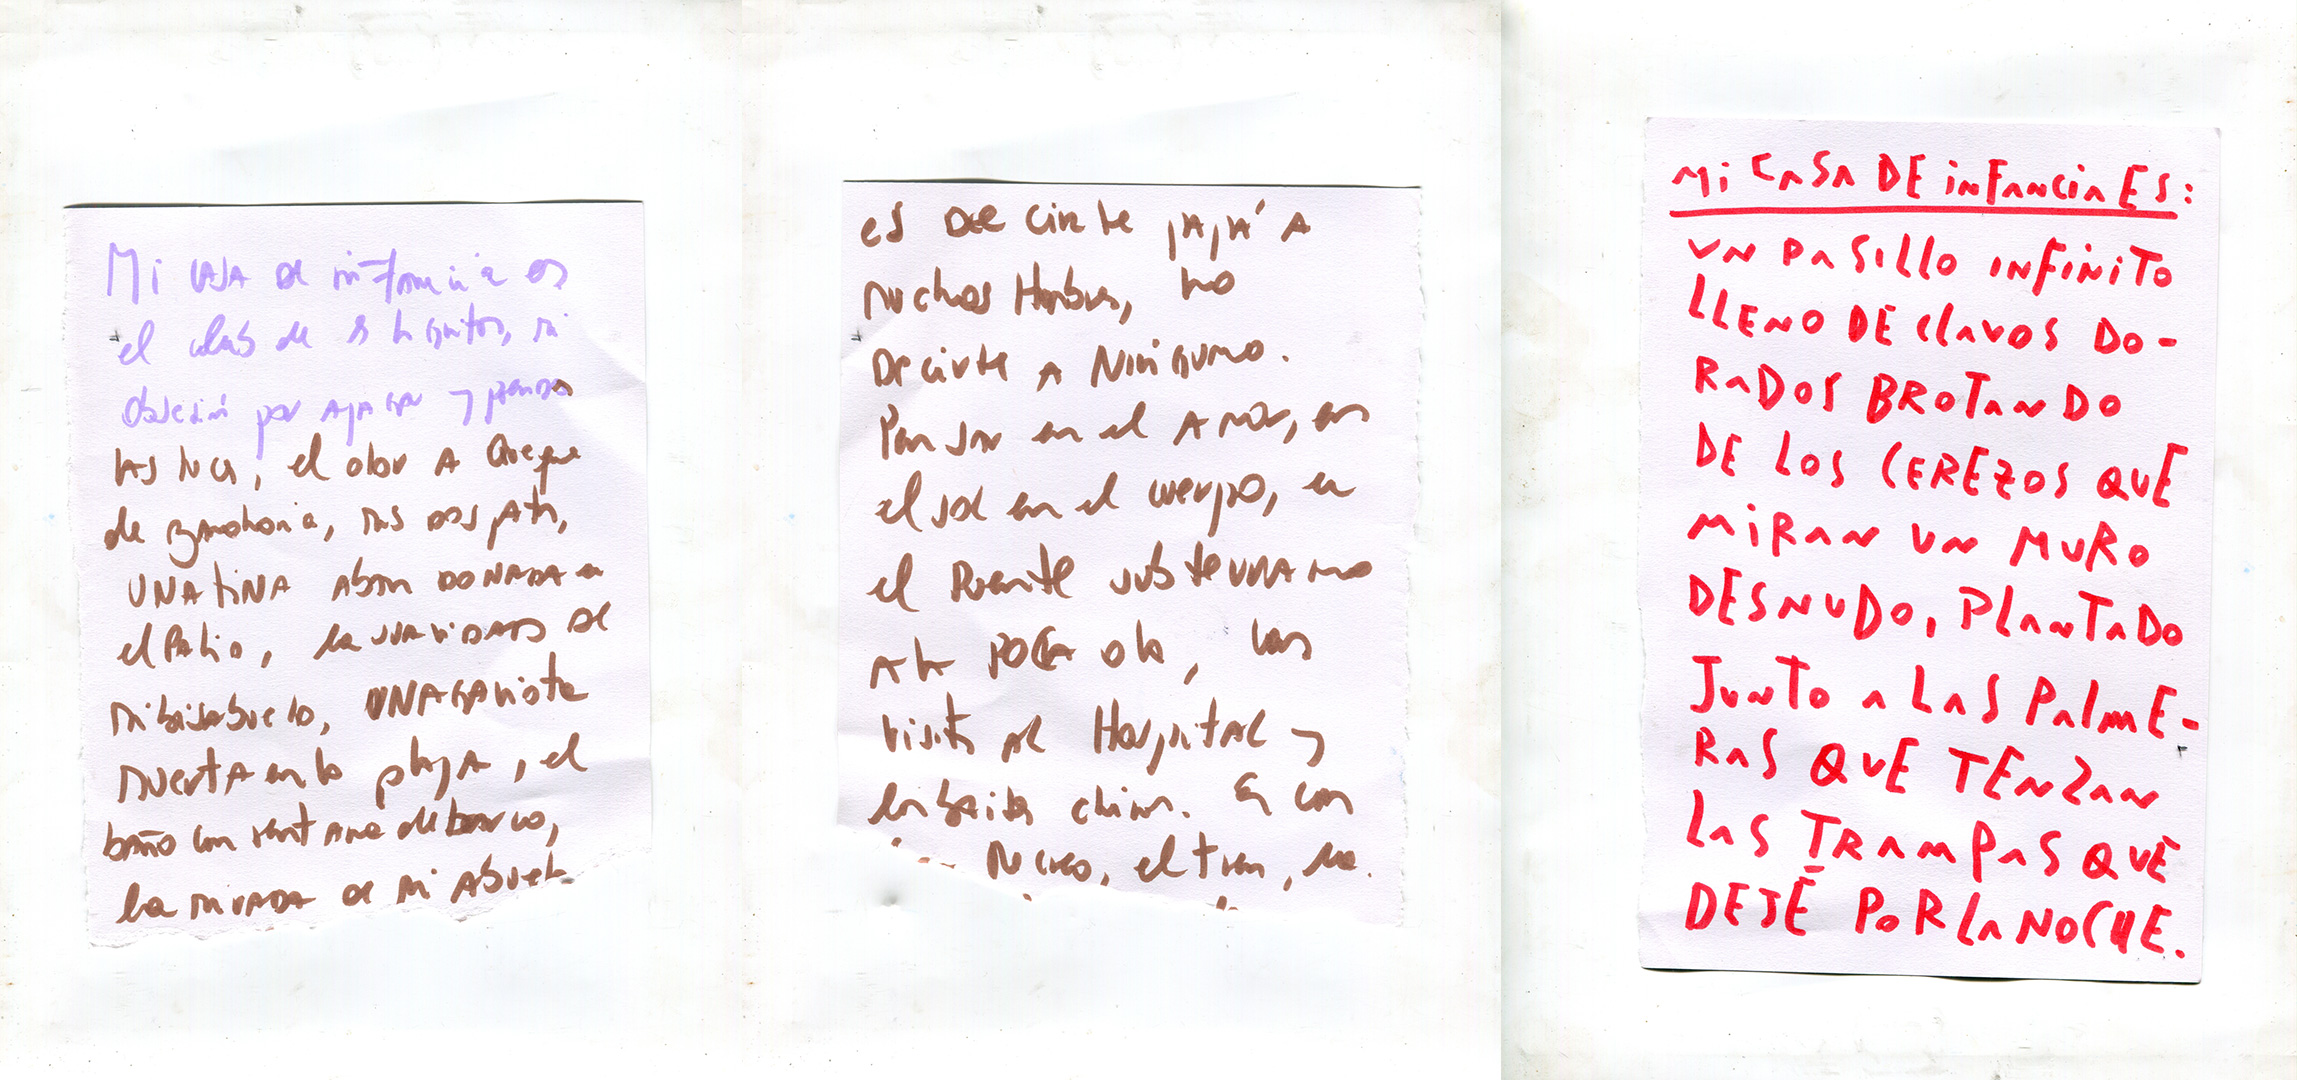 Mi casa de infancia es
el club de los gatitos, mi
obsesión por apagar y prender
las luces, el olor a queque
de zanahoria, mis dos patos,
UNA tiNA abandonada en
el Patio, la suavidad de
mi bisabuelo, UNA gaviota
muerta en la playa, el
baño con ventana de barco,
la mirada de mi abuela
es decirte papá a
muchos Hombres, no
decirte a Ninguno.
Pensar en el amor, en
el sol en el cuerpo, en
el Puente subterraneo
a la, las
visitas al Hospital y
china. Es con
el tren, la
Mi CASA DE iNFANCiA ES:
UN PASiLLO iNFiNiTO
LLENO DE CLAVOS DO-
RADOS BROTANDO
DE LOS CEREZOS QUE
MiRAN UN MURO
DESNUDO, PLANTADO
JUNTO A LAS PALME-
RAS QUE TENZAN
LAS TRAMPAS QUE
DEJÉ POR LA NOCHE.